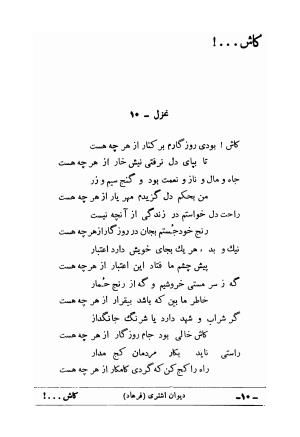 کاش . . . !
غزل ـ ۱۰
کاش ! بودی روزگارم برکنار از هر چه هست
تا بپای دل نرفتی نیش خار از هر چه هست
جاه و مال و ناز و نعمت بود و گنج سیم و زر
من بحکم دل گزیدم مهر یار از هر چه هست
راحت دل خواستم در زندگی از آنچه نیست
رنج خودجُستم بجان در روزگارازهرچه هست
نیك و بد ، هر یك بجای خویش دارد اعتبار
پیش چشم ما فتاد این اعتبار از هر چه هست
گه ز سر مستی خروشیم و گه از رنج خُمار
خاطر ما بین که باشد بیقرار از هر چه هست
گر شراب و شهد دارد یا شرنگ جانگداز
کاش خالی بود جام روزگار از هر چه هست
راستی ناید بکار مردمان کج مدار
راه را کج کن که گردی کامکار از هر چه هست
ـ۱۰ـ دیوان اشتری (فرهاد) کاش . . . !